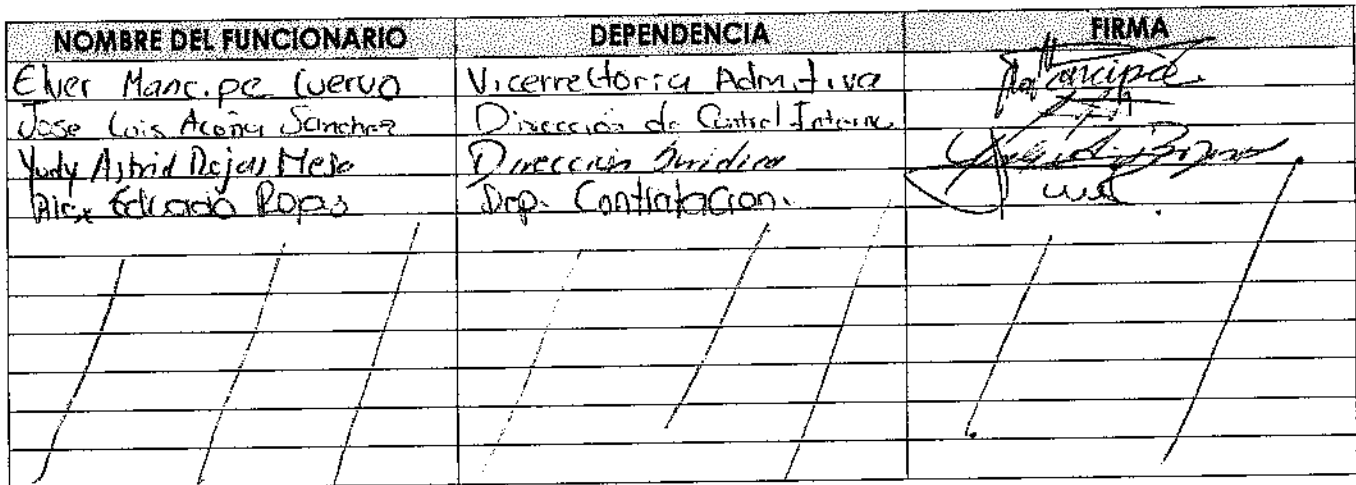 NOMBRE DEL FUNCIONARIO DEPENDENCIA FIRMA
Elver Mancipe Cuervo Vicerrectoria Admitiva Mancipe
Jose Luis Acoña Sanchez Dirección de Control Interno
Yudy Astrid Rojas Mesa Dirección Jurídica
Alex Eduardo Rojas Dep. Contratacion.